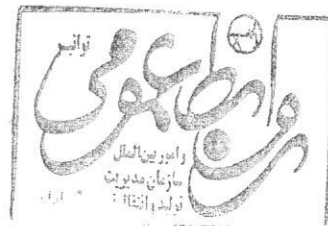 توانیر
روابط عمومی
و امور بین الملل
سازمان مدیریت
تولید و انتقال